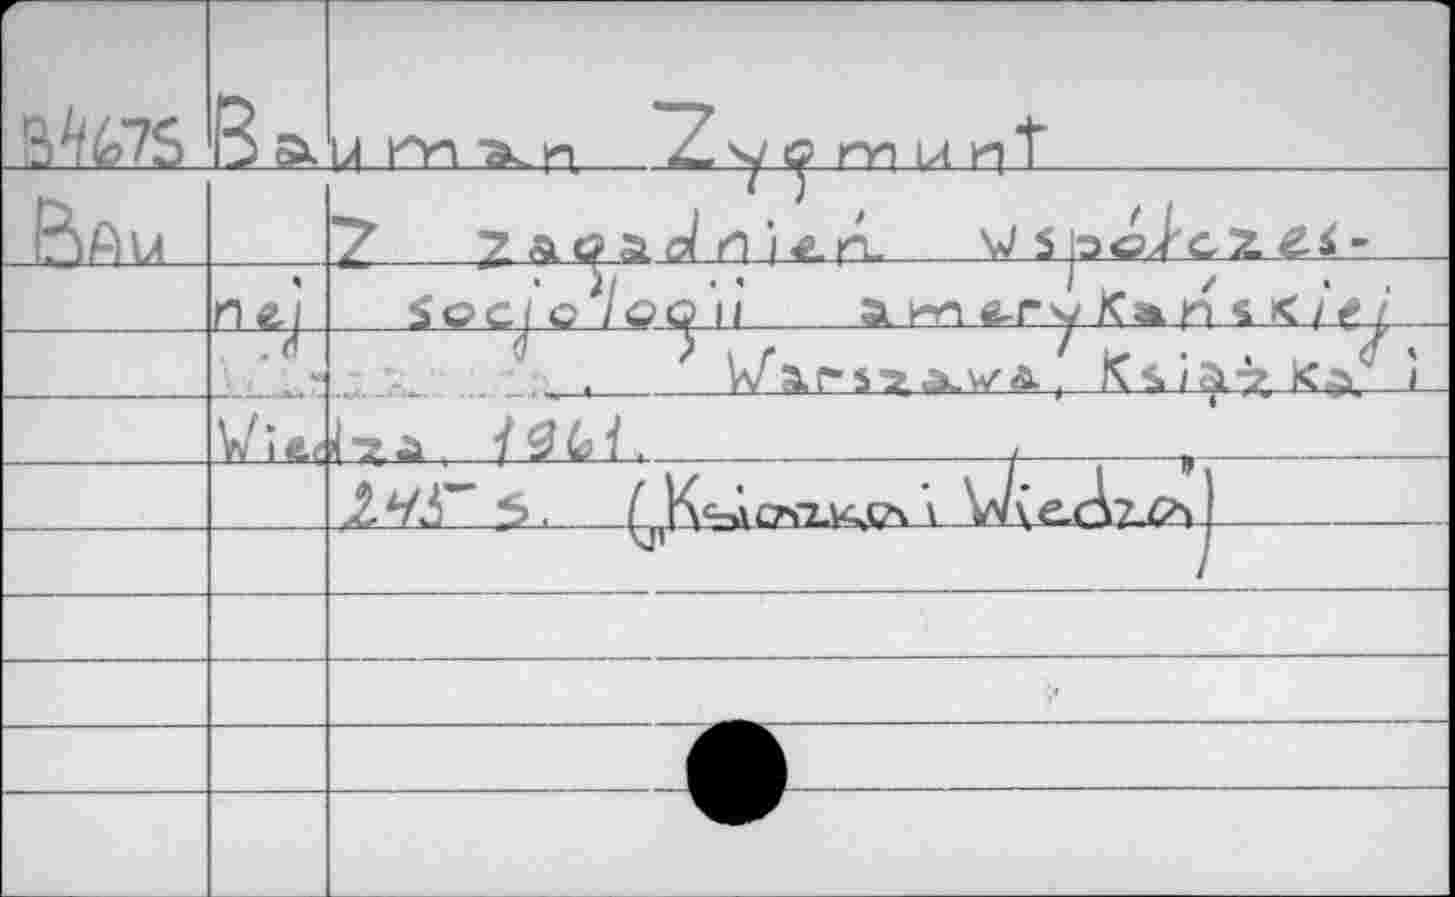 B4675 Bauman Zygmunt
BAu Z zagadnień współcześ-
nej socjologii amerykańskiej
Warszawa, Książka i
Wiedza, 1961.
245 s. („Książka i Wiedza")